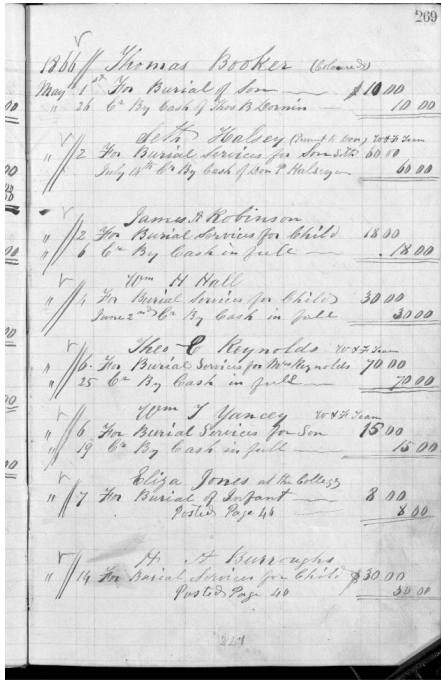 269
1866 Thomas Booker (Coloured)
May 1st For Burial of Son $10 00
" 26 Cr By Cash of Thos B Dornin 10 00
Seth Halsey W & F Team
" 2 For Burial Services for Son Seth 60 00
July 14th Cr By Cash of Don P Halsey 60 00
James A Robinson
" 2 For Burial Services for Child 18 00
" 6 Cr By Cash in full 18 00
Wm H Hall
" 4 For Burial Services for Child 30 00
June 2nd Cr By Cash in full 30 00
Theo C Reynolds W & F Team
" 6 For Burial Services for Mrs Reynolds 70 00
" 25 Cr By Cash in full 70 00
Wm T Yancey W & F Team
" 6 For Burial Services for Son 15 00
" 19 Cr By Cash in full 15 00
Eliza Jones at the College
" 7 For Burial of Infant 8 00
Posted Page 46 8 00
H A Burroughs
" 14 For Burial Services for Child $30.00
Posted Page 40 30 00